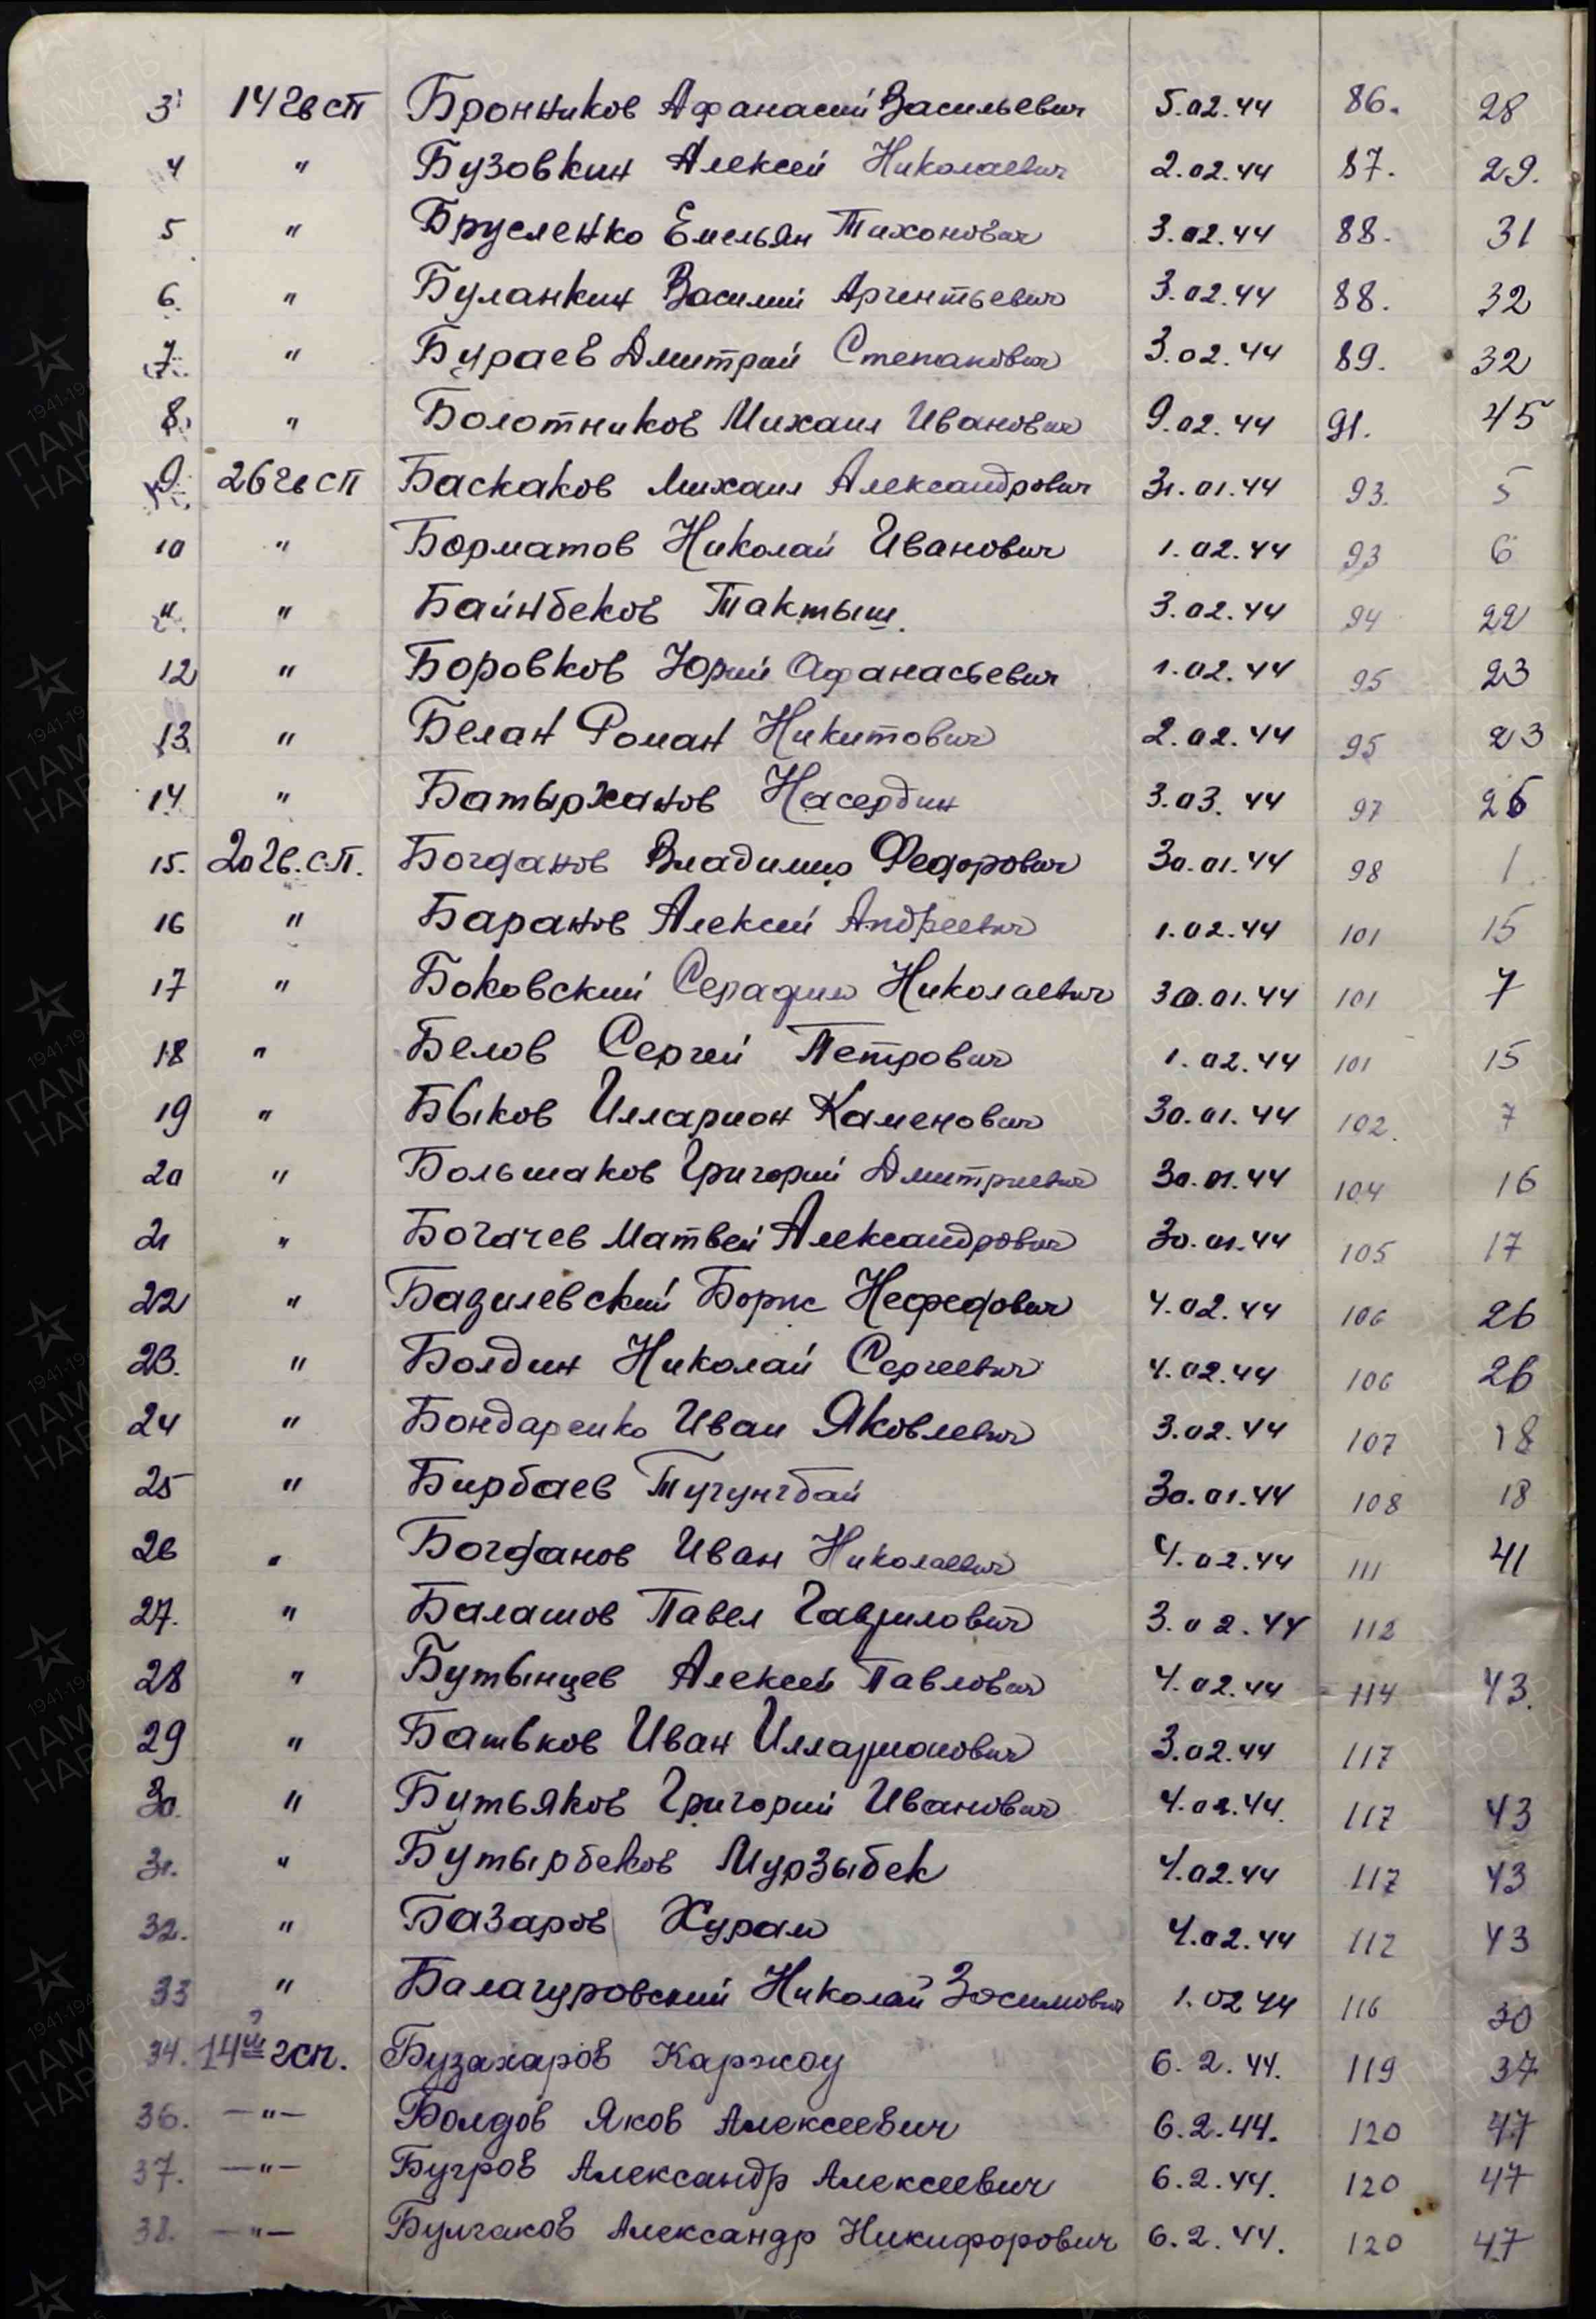 3 14 Гв СП Бронников Афанасий Васильевич 5.02.44 86. 28
4 " Бузовкин Алексей Николаевич 2.02.44 87. 29.
5 " Брусленко Емельян Тихонович 3.02.44 88. 31
6. " Буланкин Василий Арентьевич 3.02.44 88. 32
7. " Бураев Дмитрий Степанович 3.02.44 89. 32
8. " Болотников Михаил Иванович 9.02.44 91. 45
9. 26 Гв СП Баскаков Михаил Александрович 31.01.44 93. 5
10 " Борматов Николай Иванович 1.02.44 93 6
11 " Байнбеков Тактыш 3.02.44 94 22
12 " Боровков Юрий Афанасьевич 1.02.44 95 23
13. " Белан Роман Никитович 2.02.44 95 23
14. " Батыржанов Насердин 3.03.44 97 26
15. 20 Гв. С.П. Богданов Владимир Федорович 30.01.44 98 1
16 " Баранов Алексей Андреевич 1.02.44 101 15
17 " Боковский Серафим Николаевич 30.01.44 101 7
18 " Белов Сергей Петрович 1.02.44 101 15
19 " Быков Илларион Каменович 30.01.44 102. 7
20 " Большаков Григорий Дмитриевич 30.01.44 104 16
21 " Богачев Матвей Александрович 30.01.44 105 17
22 " Базилевский Борис Нефедович 4.02.44 106 26
23. " Болдин Николай Сергеевич 4.02.44 106 26
24 " Бондаренко Иван Яковлевич 3.02.44 107 18
25 " Бирбаев Тугунгбай 30.01.44 108 18
26 " Богданов Иван Николаевич 4.02.44 111 41
27. " Балашов Павел Гаврилович 3.02.44 112
28 " Бутынцев Алексей Павлович 4.02.44 114 43.
29 " Батьков Иван Илларионович 3.02.44 117
30. " Бутьяков Григорий Иванович 4.02.44. 117 43
31. " Бутырбеков Мурзыбек 4.02.44 117 43
32. " " Базаров Хурам 4.02.44 117 43
33 " Балагуровский Николай Зосимович 1.02 44 116 30
34. 14й гсп. Бузахаров Каржоу 6.2.44. 119 37
36. —"— Болдов Яков Алексеевич 6.2.44. 120 47
37. —"— Бугров Александр Алексеевич 6.2.44. 120 47
38. —"— Булгаков Александр Никифорович 6.2.44. 120 47